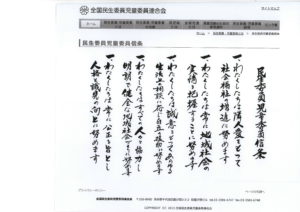 全国民生委員児童委員連合会
ホーム
民生委員児童委員信条
民生委員児童委員信条
一、わたくしたちは、隣人愛をもって
社会福祉の増進に努めます
一、わたくしたちは、常に地域社会の
実情を把握することに努めます
一、わたくしたちは、誠意をもってあらゆる
生活上の相談に応じ自立の援助に努めます
一、わたくしたちは、すべての人々と協力し
明朗で健全な地域社会づくりに努めます
一、わたくしたちは、常に公正を旨とし
人格と識見の向上に努めます
プライバシーポリシー
全国民生委員児童委員連合会